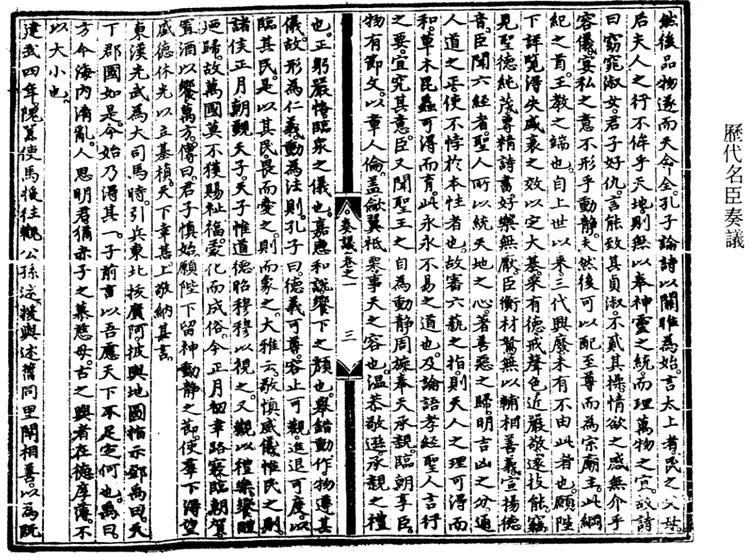 歷代名臣奏議
然後品物遂而天命全孔子論詩以關雎為始言太上者民之父母
后夫人之行不侔乎天地則無以奉神靈之統而理萬物之宜故詩
曰窈窕淑女君子好仇言能致其貞淑不貳其操情欲之感無介乎
容儀宴私之意不形乎動靜夫然後可以配至尊而為宗廟主此綱
紀之首王教之端也自上世以來三代興廢未有不由此者也願陛
下詳覽得失盛衰之效以定大基采有德戒聲色近嚴敬遠技能竊
見聖德純茂專精詩書好樂無厭臣衡材駑無以輔相善義宣揚德
音臣聞六經者聖人所以統天地之心著善惡之歸明吉凶之分通
人道之正使不悖於本性者也故審六藝之指則天人之理可得而
和草木昆蟲可得而育此永永不易之道也及論語孝經聖人言行
之要宜究其意臣又聞聖王之自為動靜周旋奉天承親臨朝享臣
物有節文以章人倫蓋欽翼祗栗事天之容也溫恭敬遜承親之禮
奏議卷之一 三
也正躬嚴恪臨衆之儀也嘉惠和說饗下之顏也舉錯動作物遵其
儀故形為仁義動為法則孔子曰德義可尊容止可觀進退可度以
臨其民是以其民畏而愛之則而象之大雅云敬慎威儀惟民之則
諸侯正月朝覲天子天子惟道德昭穆穆以視之又觀以禮樂饗醴
迺歸故萬國莫不獲賜祉福蒙化而成俗今正月初幸路寢臨朝賀
置酒以饗萬方傳曰君子慎始願陛下留神動靜之節使羣下得望
盛德休光以立基楨天下幸甚上敬納其言
東漢光武為大司馬時引兵東北拔廣阿披輿地圖指示鄧禹曰天
下郡國如是今始乃得其一子前言以吾慮天下不足定何也禹曰
方今海內淆亂人思明君猶赤子之慕慈母古之興者在德厚薄不
以大小也
建武四年隗囂使馬援往觀公孫述援與述舊同里閈相善以為既